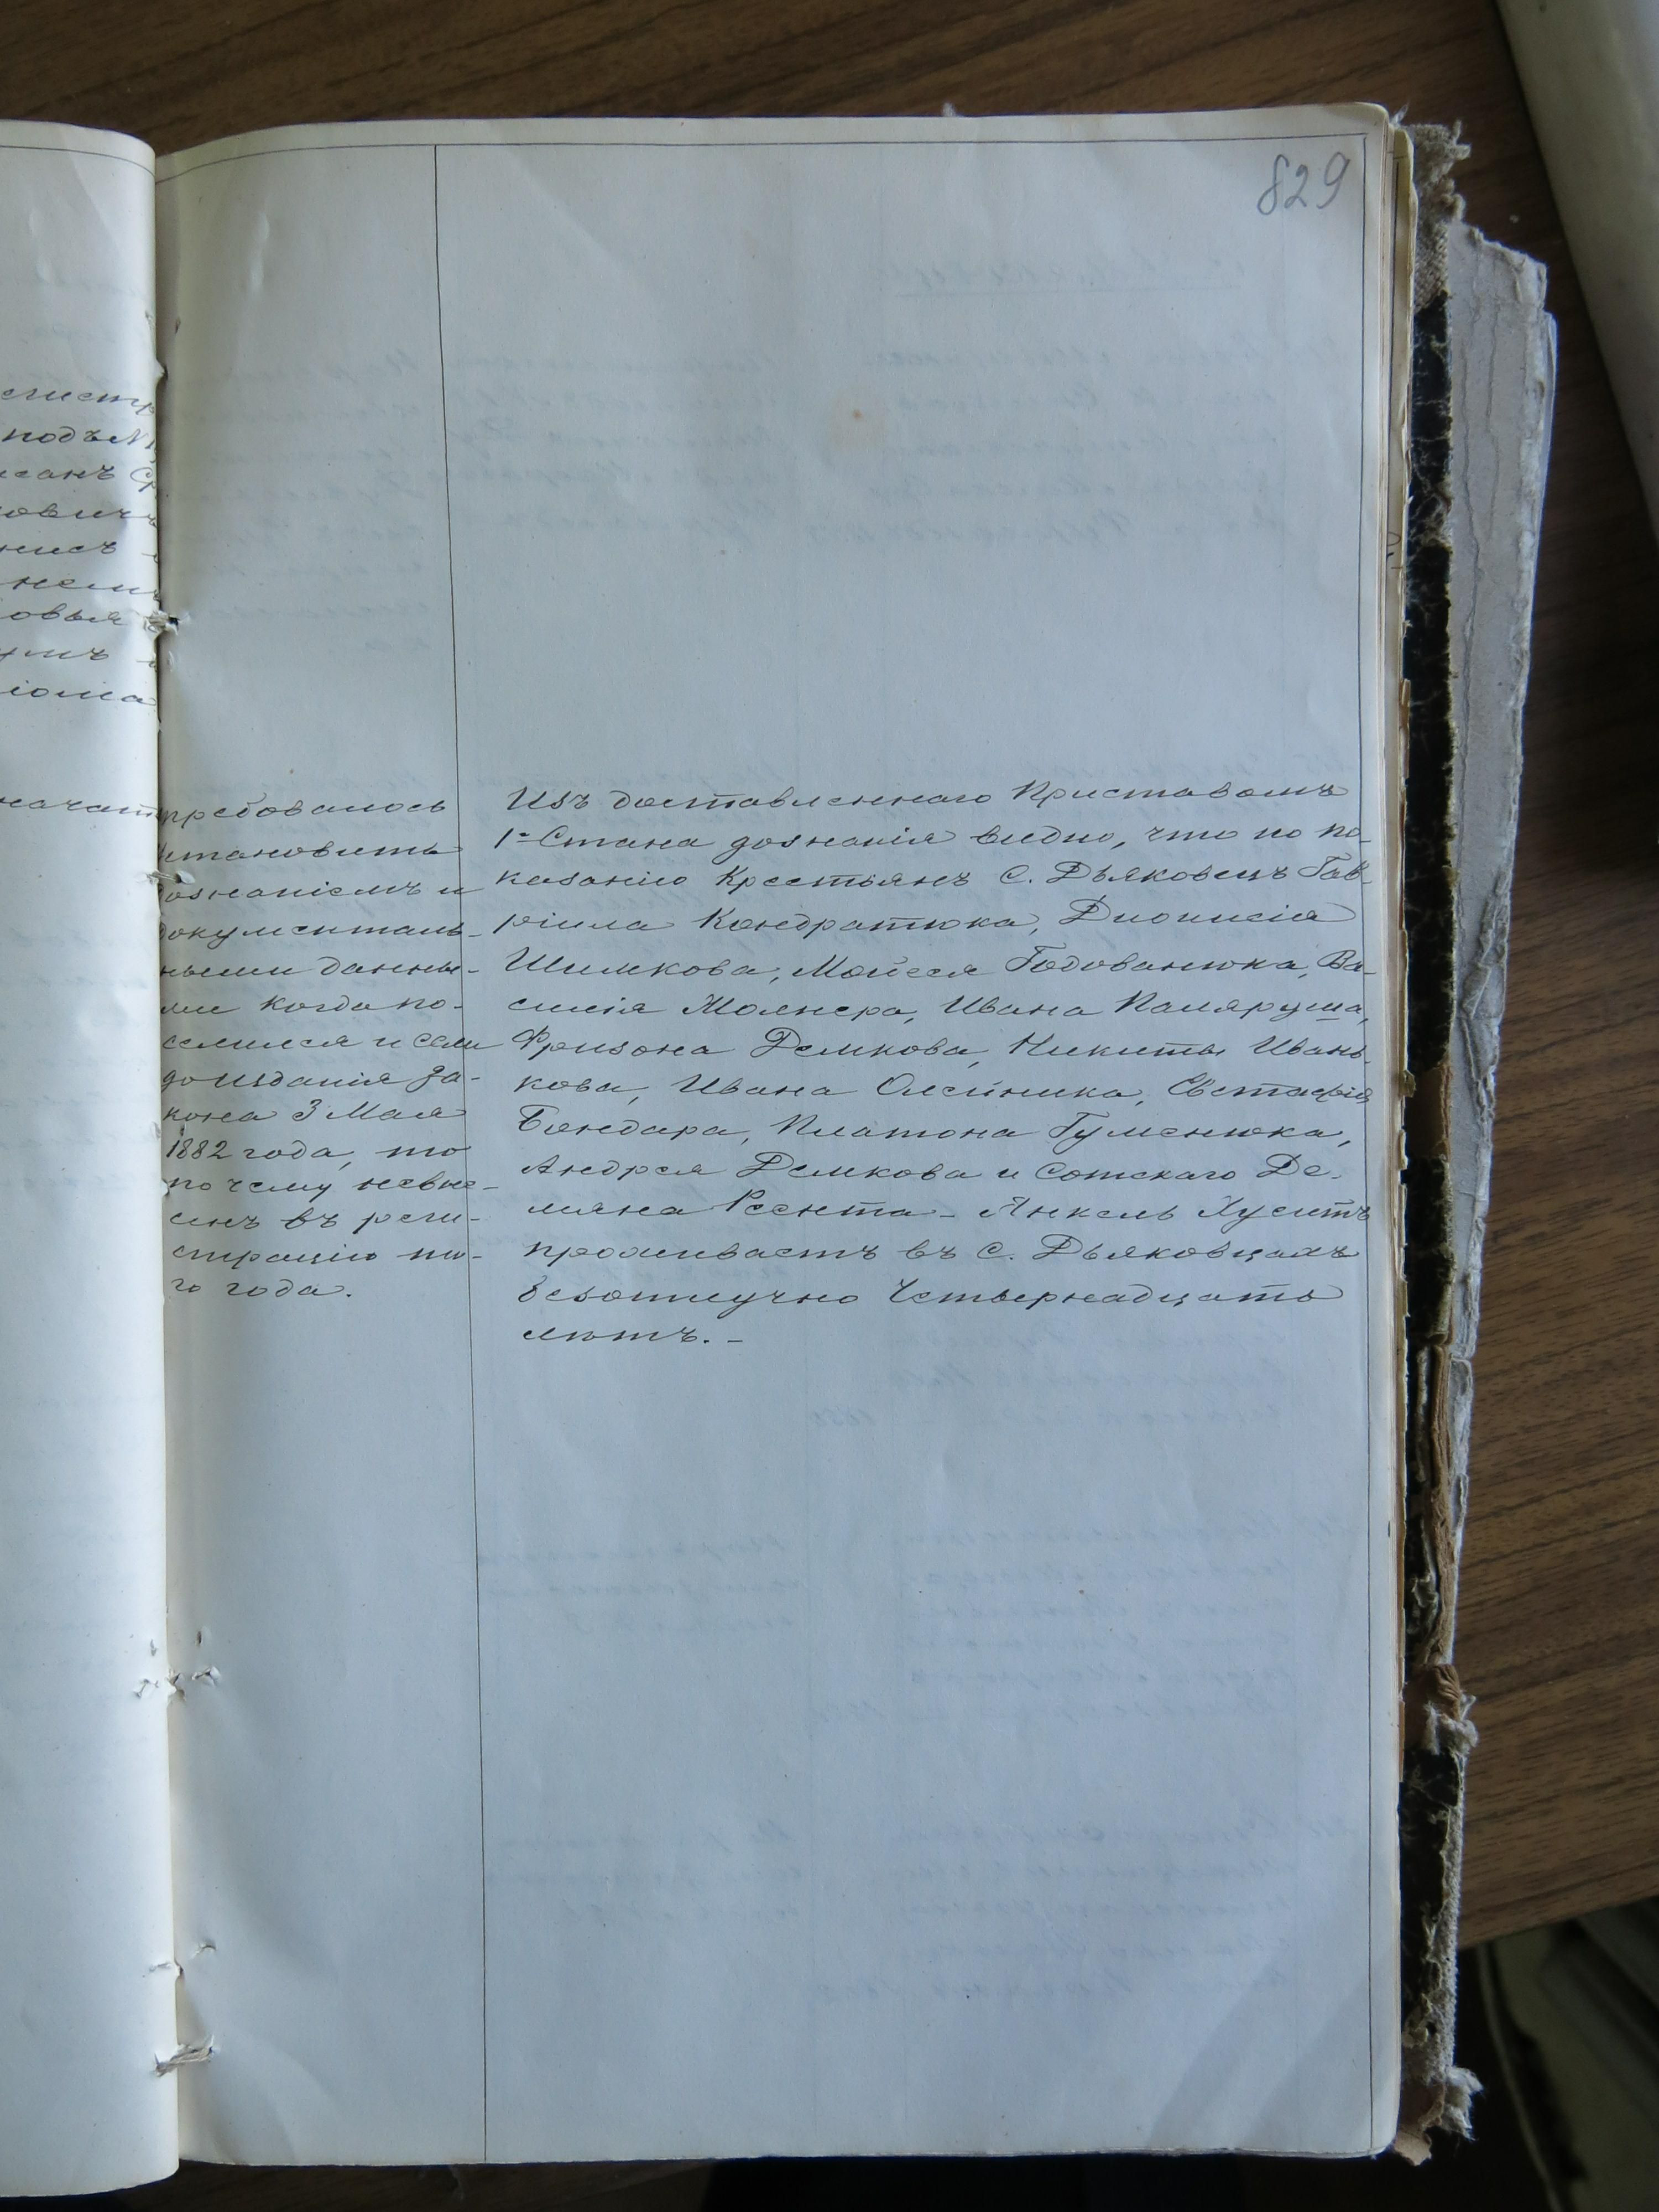 829
подъ
требовалось
установить
дознаніемъ и
документаль-
ными данны-
ми когда по-
селился и если
до изданія За-
кона 3 Мая
1882 года, то
почему невне-
сенъ въ реги-
страцію
го года.
Изъ доставленнаго Приставомъ
1го Стана дознанія видно, что по по-
казанію Крестьянъ С. Дьяковецъ Гав-
ріила Кондратюка, Дионисія
Шимкова, Мойсея Годованюка, Ва-
силія Жолнера, Ивана Паляруша,
Демкова, Никиты Ивань-
кова, Ивана Олейника, Евстафія
Бондара, Платона Гуменюка,
Андрея Демкова и Сотскаго Де-
мяна Реента - Янкель Хуситъ
проживаетъ въ С. Дьяковцахъ
безотлучно Четырнадцать
лѣтъ. -